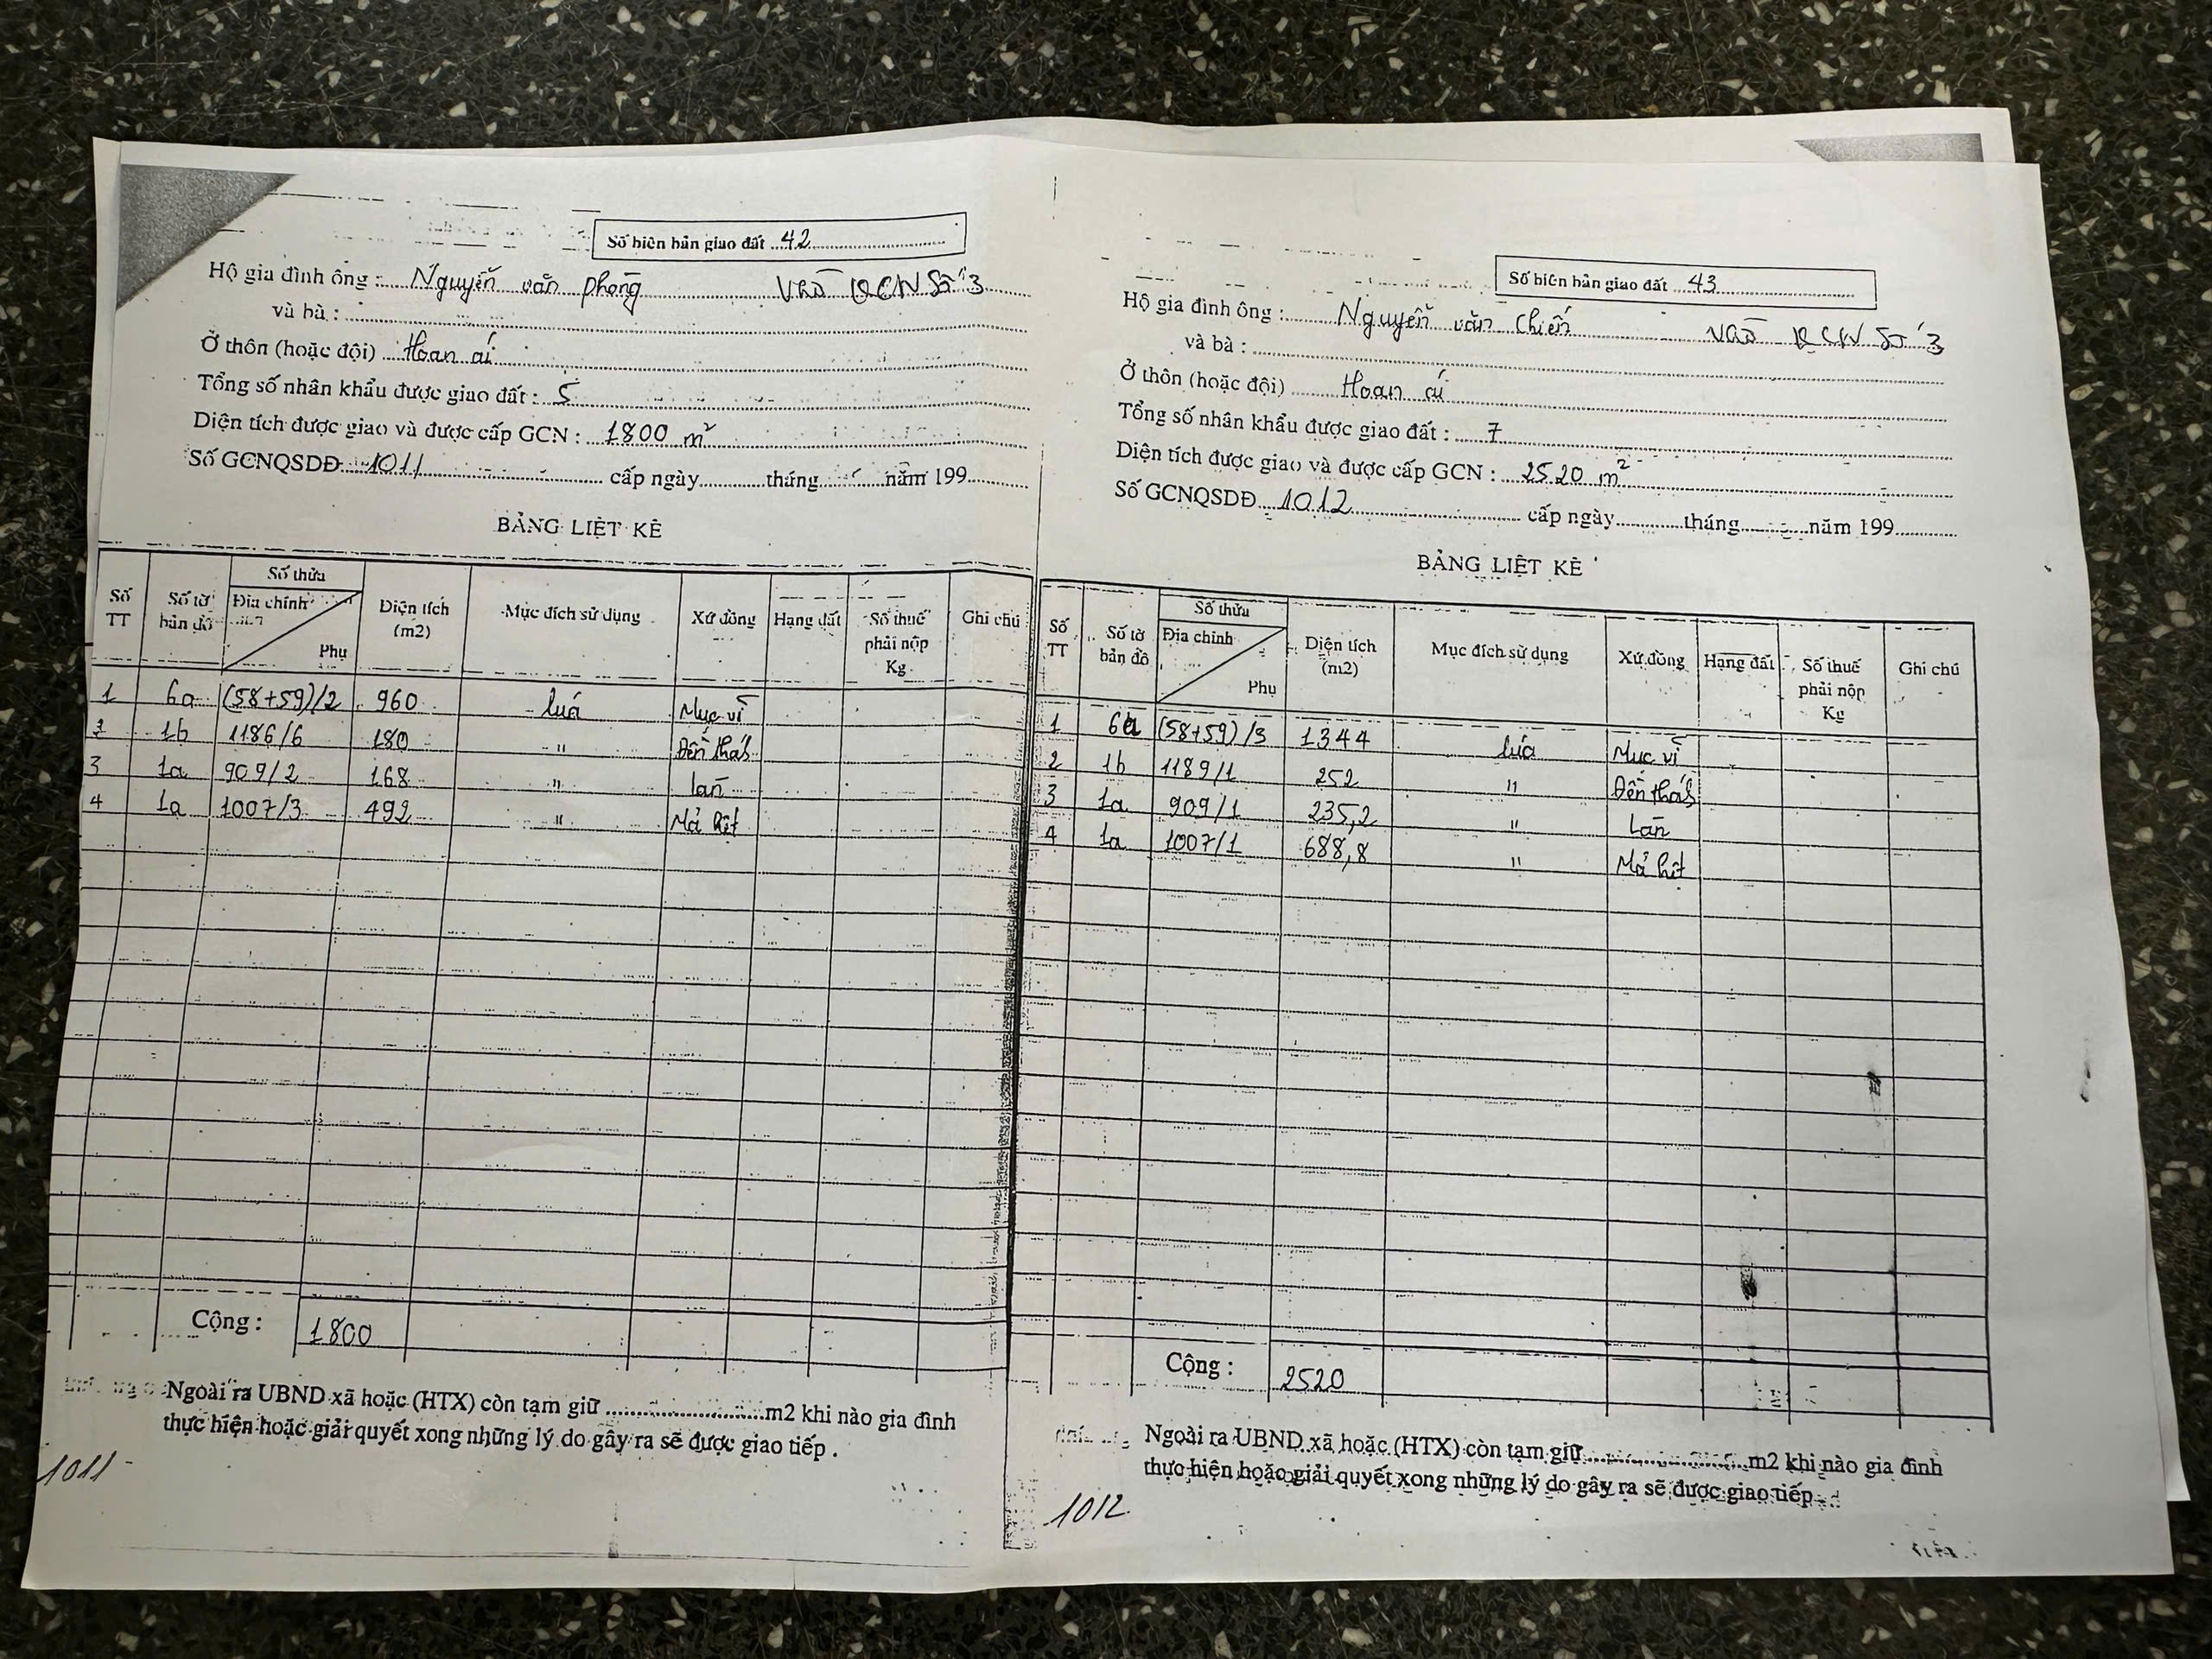 Số biên bản giao đất 42
Hộ gia đình ông : Nguyễn văn phong Vào QCN Số 3
và bà :
Ở thôn (hoặc đội) Hoan ái
Tổng số nhân khẩu được giao đất : 5
Diện tích được giao và được cấp GCN : 1800 m²
Số GCNQSDĐ 1011 cấp ngày tháng năm 199
BẢNG LIỆT KÊ
Số TT Số tờ bản đồ Số thửa Địa chính Phụ Diện tích (m2) Mục đích sử dụng Xứ đồng Hạng đất Số thuế phải nộp Kg Ghi chú
1 6a (58+59)/2 960 lúa Mục vì
2 1b 1186/6 180 " Đền thás
3 1a 909/2 168 " Lan
4 1a 1007/3 492 " Mả
Cộng : 1800
Ngoài ra UBND xã hoặc (HTX) còn tạm giữ m2 khi nào gia đình
thực hiện hoặc giải quyết xong những lý do gây ra sẽ được giao tiếp .
1011
Số biên bản giao đất 43
Hộ gia đình ông : Nguyễn văn Chiến Vào QCN Số 3
và bà :
Ở thôn (hoặc đội) Hoan ái
Tổng số nhân khẩu được giao đất : 7
Diện tích được giao và được cấp GCN : 2520 m²
Số GCNQSDĐ 1012 cấp ngày tháng năm 199
BẢNG LIỆT KÊ
Số TT Số tờ bản đồ Số thửa Địa chính Phụ Diện tích (m2) Mục đích sử dụng Xứ đồng Hạng đất Số thuế phải nộp Kg Ghi chú
1 6a (58+59)/3 1344 lúa Mục vì
2 1b 1189/1 252 " Đền thás
3 1a 909/1 235,2 " Lan
4 1a 1007/1 688,8 " Mả
Cộng : 2520
Ngoài ra UBND xã hoặc (HTX) còn tạm giữ m2 khi nào gia đình
thực hiện hoặc giải quyết xong những lý do gây ra sẽ được giao tiếp
1012